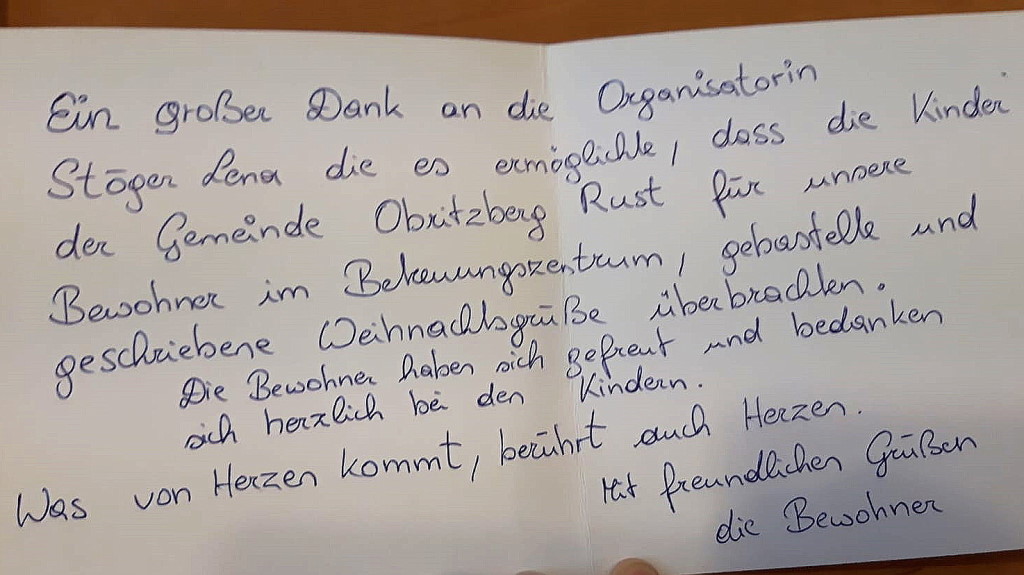 Ein großer Dank an die Organisatorin
Stöger Lena die es ermöglichte, dass die Kinder
der Gemeinde Obritzberg Rust für unsere
Bewohner im Betreuungszentrum, gebastelte und
geschriebene Weihnachtsgrüße überbrachten.
Die Bewohner haben sich gefreut und bedanken
sich herzlich bei den Kindern.
Was von Herzen kommt, berührt auch Herzen.
Mit freundlichen Grüßen
die Bewohner